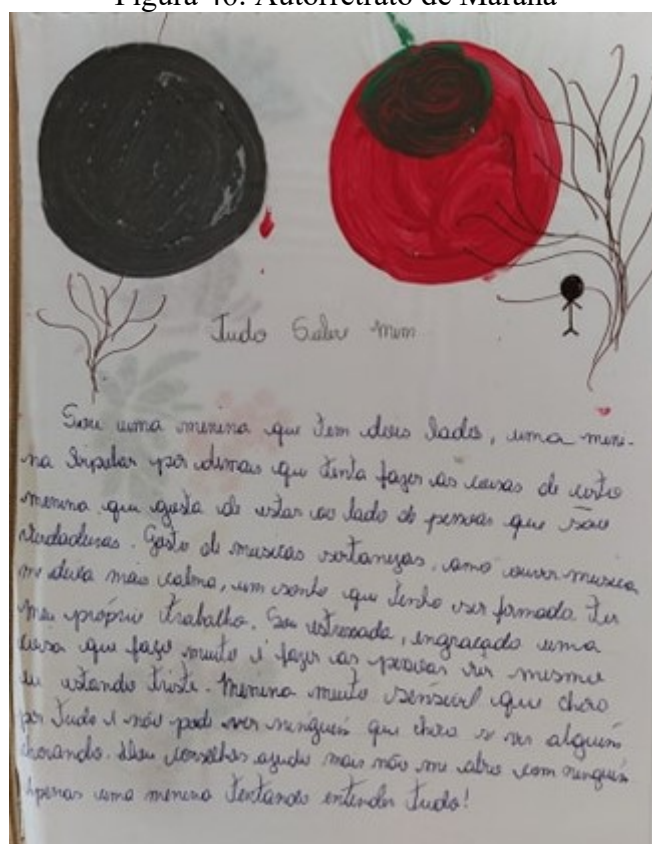 Figura 46: Autorretrato de Marana
Tudo Sobre mim
Sou uma menina que tem dois lados, uma meni-
na bipolar por demais que tenta fazer as coisas de
menina que gosta de estar ao lado de pessoas que são
verdadeiras. Gosto de musicas sertanejas, amo ouvir musica
me deixa mais calma, um sonho que tenho ser formada. Ter
meu próprio trabalho. Sou estressada, engraçado uma
coisa que faço muito é fazer as pessoas rir mesmo
eu estando triste. Menina muito sensivel que chora
por tudo e não pode ver ninguém que chora se ver alguém
chorando. Dou conselhos ajudo mais não me abro com ninguém
Apenas uma menina tentando entender tudo!